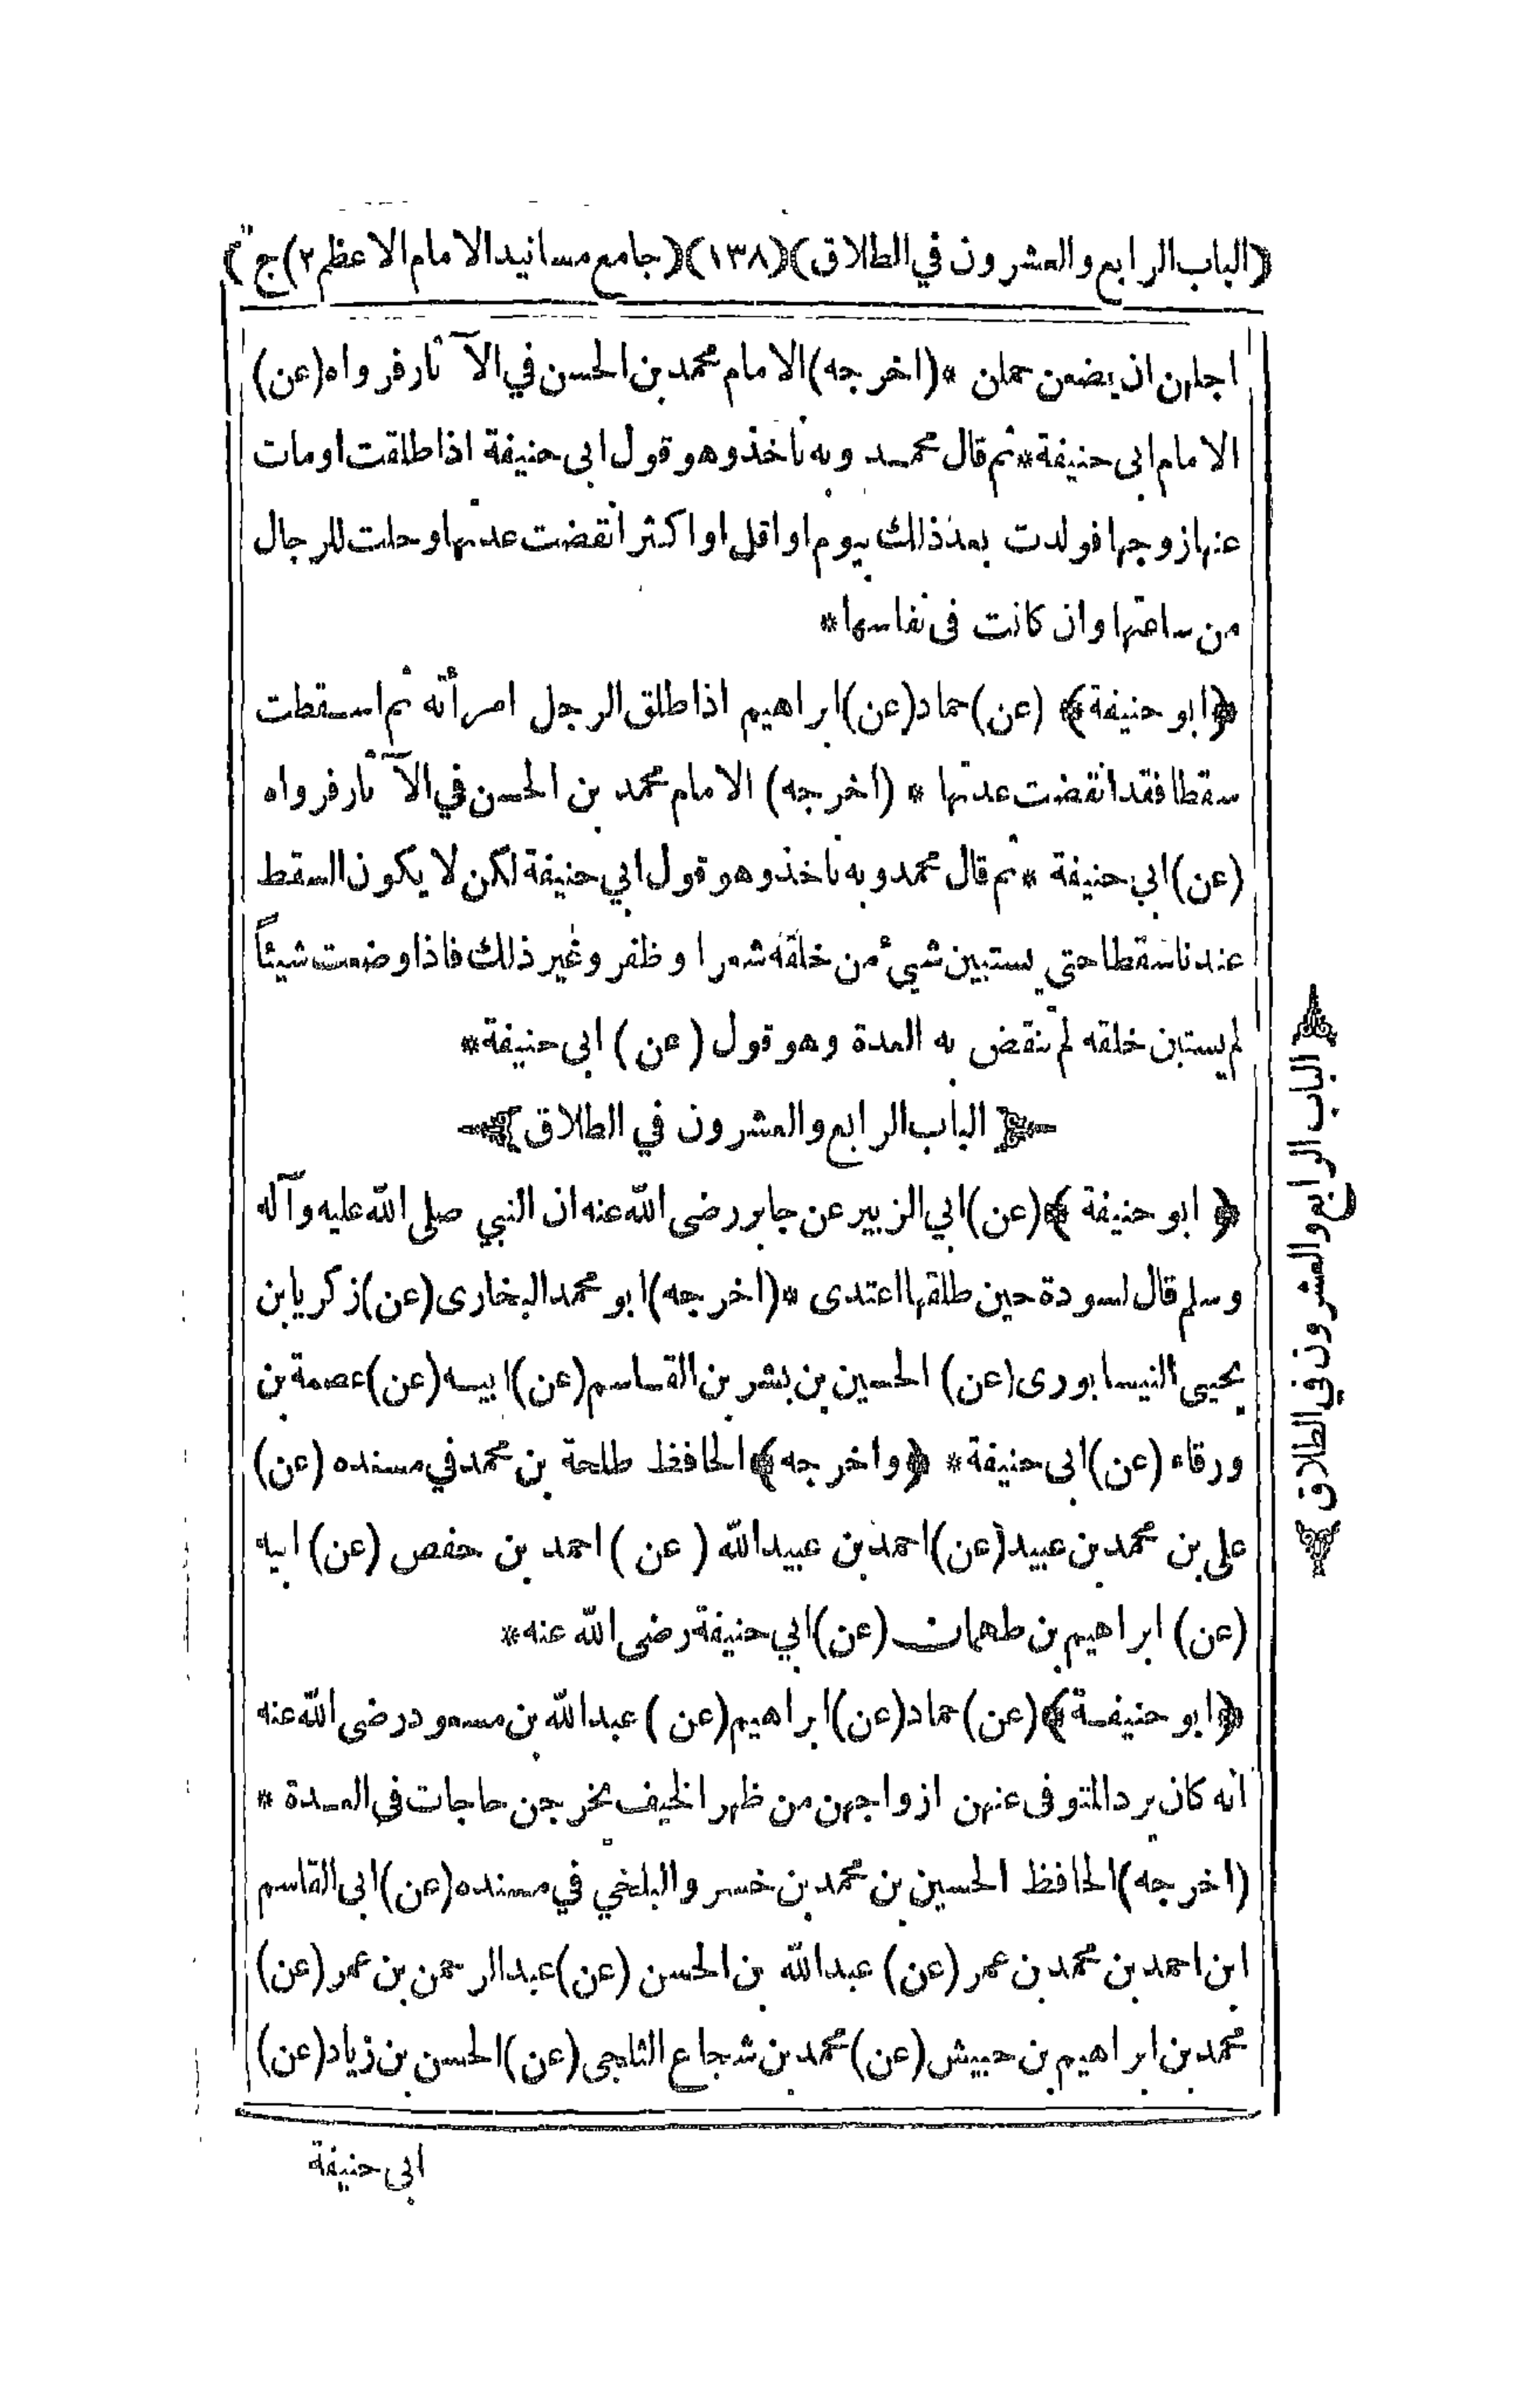 (الباب الرابع والعشرون في الطلاق) (١٣٨) (جامع مسانيد الامام الاعظم ٢) ج
اجلهن ان يضعن حملهن * (اخرجه) الامام محمد بن الحسن في الآثار فرواه (عن)
الامام ابى حنيفة * ثم قال محمد وبه ناخذ وهو قول ابى حنيفة اذا طلقت او مات
عنها زوجها فولدت بعد ذلك بيوم او اقل او اكثر انقضت عدتها وحلت للرجال
من ساعتها وان كانت فى نفاسها *
﴿ابو حنيفة﴾ (عن) حماد (عن) ابراهيم اذا طلق الرجل امرأته ثم اسقطت
سقطا فقد انقضت عدتها * (اخرجه) الامام محمد بن الحسن في الآثار فرواه
(عن) ابي حنيفة * ثم قال محمد وبه ناخذ وهو قول ابي حنيفة لكن لا يكون السقط
عندنا سقطا حتى يستبين شيئ من خلقه شعر او ظفر وغير ذلك فاذا وضعت شيئاً
لم يستبن خلقه لم تنقض به العدة وهو قول (عن) ابى حنيفة *
الباب الرابع والعشرون في الطلاق
﴿ابو حنيفة﴾ (عن) ابي الزبير عن جابر رضى الله عنه ان النبي صلى الله عليه وآله
وسلم قال لسودة حين طلقها اعتدى * (اخرجه) ابو محمد البخارى (عن) زكريا بن
يحيى النيسابورى (عن) الحسين بن بشر بن القاسم (عن) ابيه (عن) عصمة بن
ورقاء (عن) ابى حنيفة * ﴿واخرجه﴾ الحافظ طلحة بن محمد في مسنده (عن)
على بن محمد بن عبيد (عن) احمد بن عبيد الله (عن) احمد بن حفص (عن) ابيه
(عن) ابراهيم بن طهمان (عن) ابي حنيفة رضى الله عنه *
﴿ابو حنيفة﴾ (عن) حماد (عن) ابراهيم (عن) عبد الله بن مسعود رضى الله عنه
انه كان يرد المتوفى عنهن ازواجهن من ظهر الخيف يخرجن حاجات في العدة *
(اخرجه) الحافظ الحسين بن محمد بن خسرو البلخي في مسنده (عن) ابى القاسم
ابن احمد بن محمد بن عمر (عن) عبد الله بن الحسن (عن) عبد الرحمن بن عمر (عن)
محمد بن ابراهيم بن حبيش (عن) محمد بن شجاع الثلجى (عن) الحسن بن زياد (عن)
ابى حنيفة
﴿الباب الرابع والعشرون في الطلاق﴾